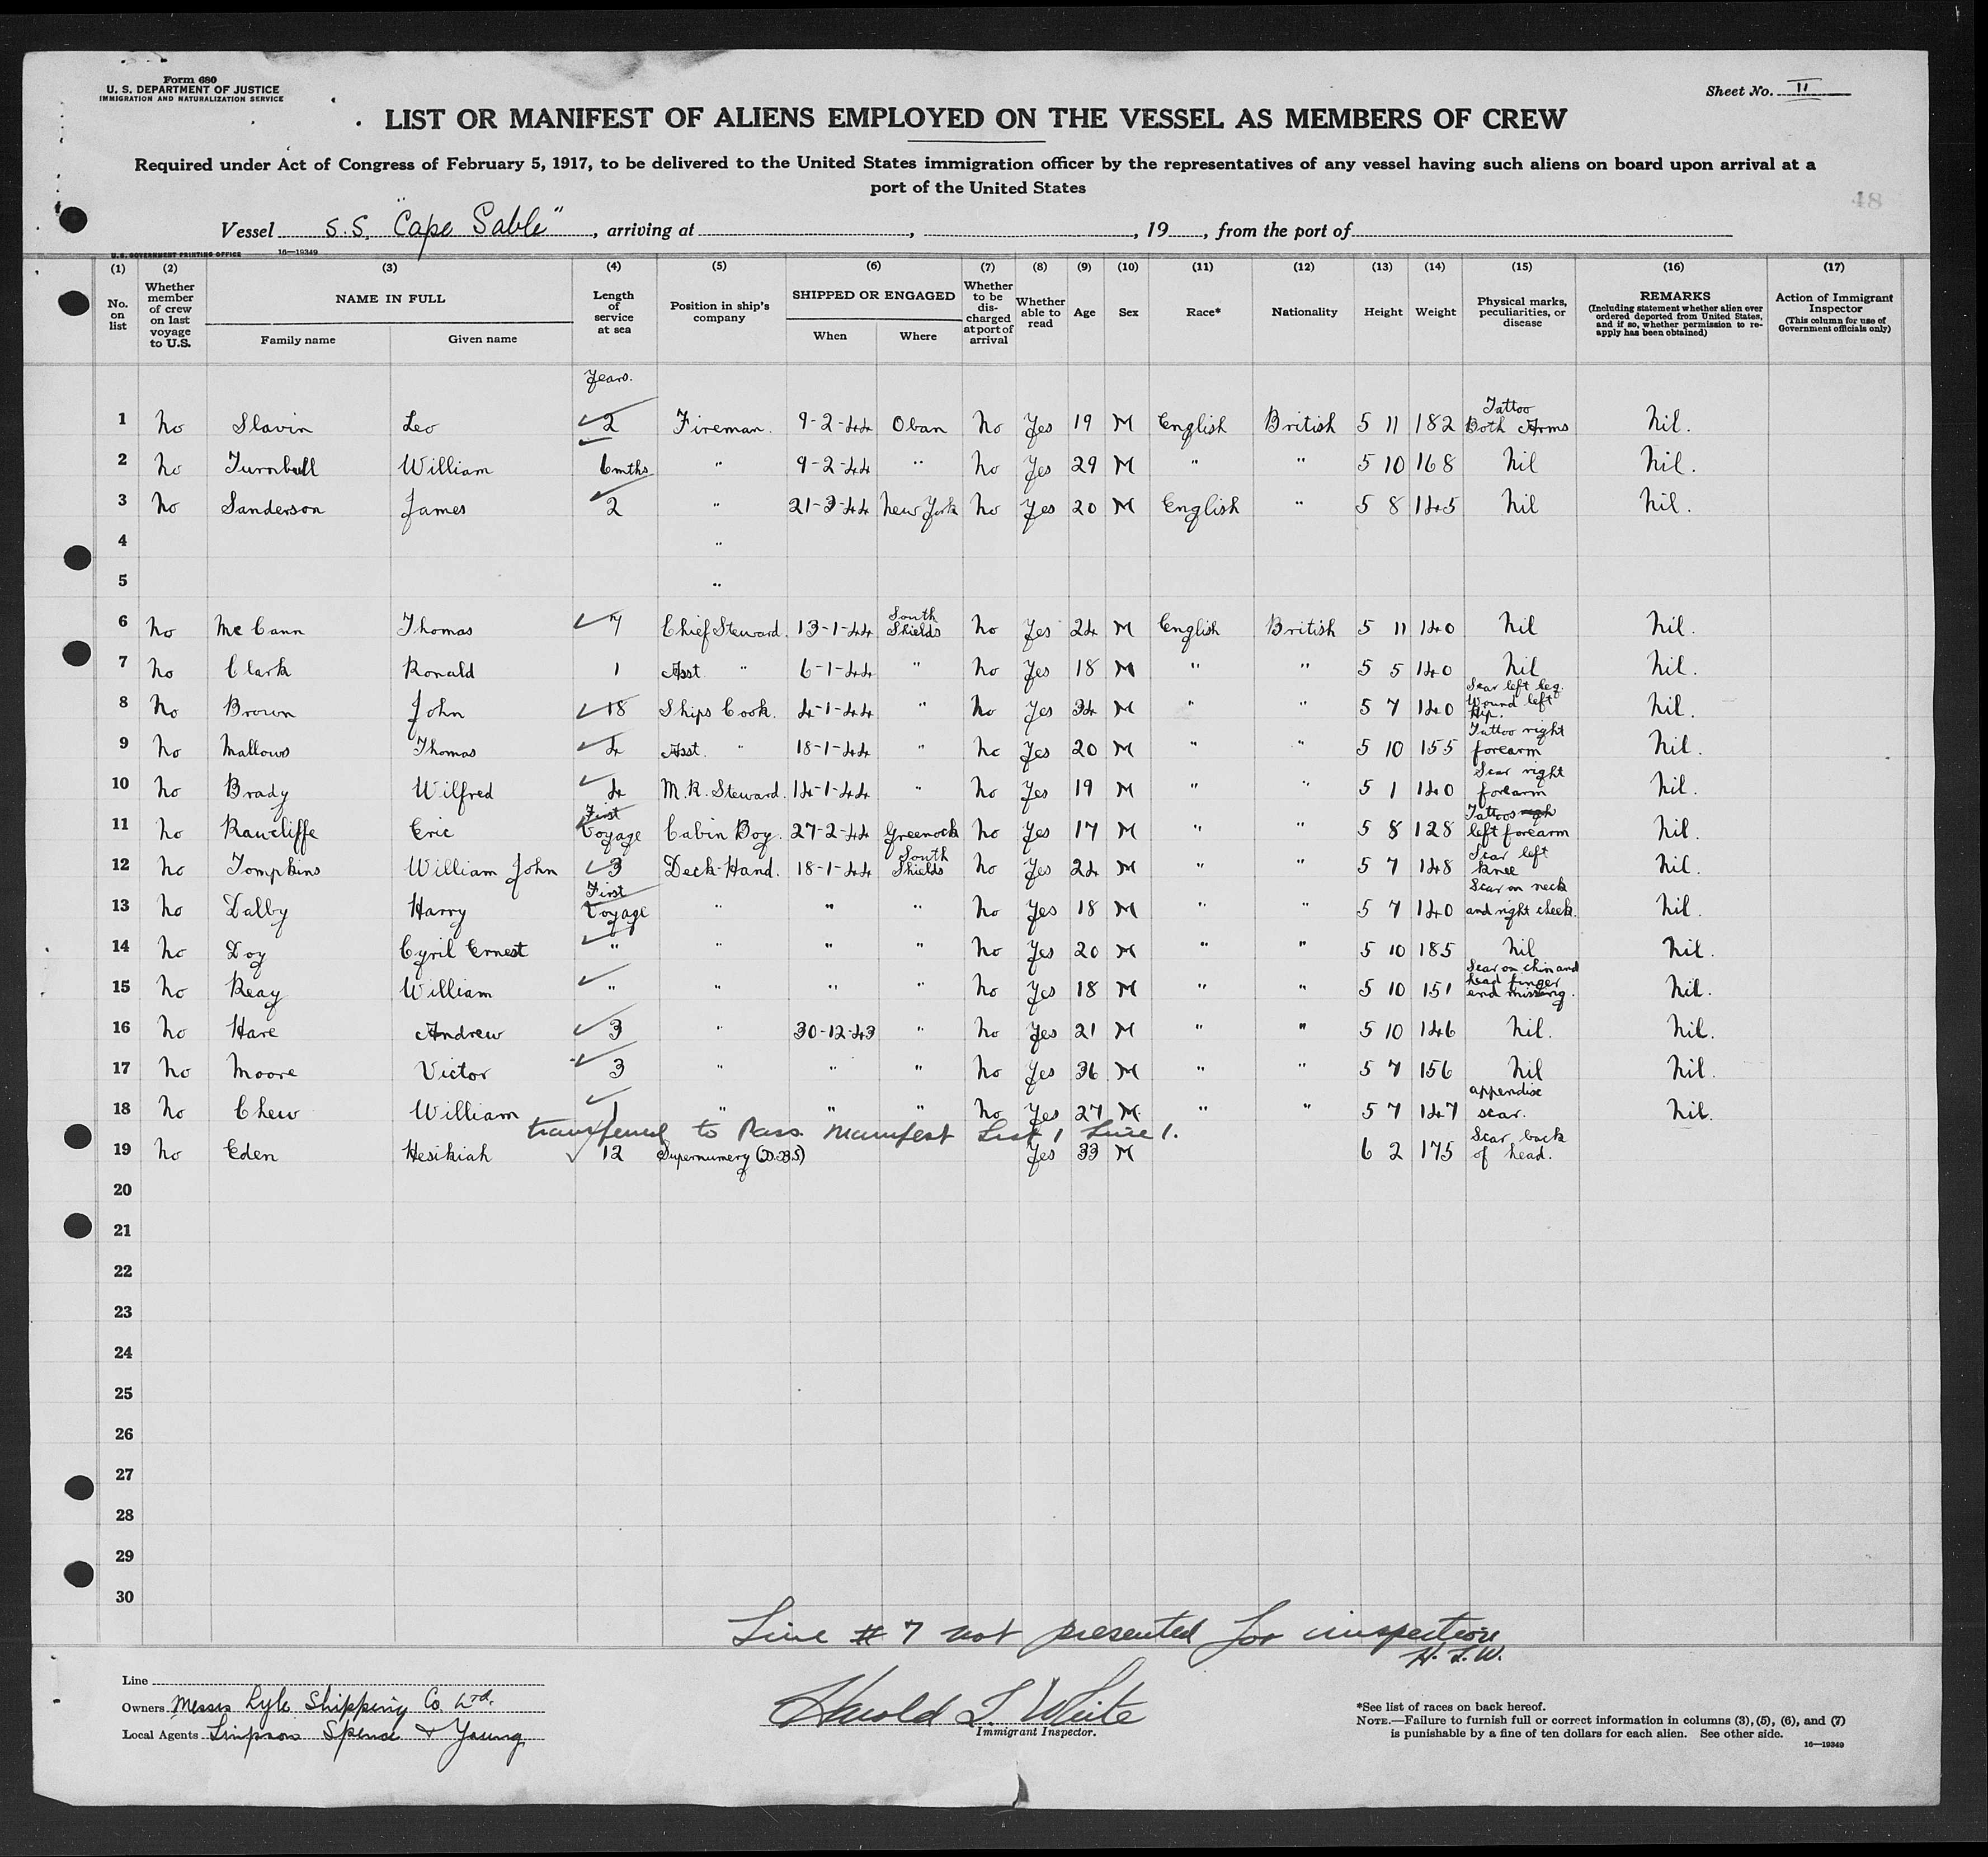 Form 680
U. S. DEPARTMENT OF JUSTICE
IMMIGRATION AND NATURALIZATION SERVICE
Sheet No. II
LIST OR MANIFEST OF ALIENS EMPLOYED ON THE VESSEL AS MEMBERS OF CREW
Required under Act of Congress of February 5, 1917, to be delivered to the United States immigration officer by the representatives of any vessel having such aliens on board upon arrival at a
port of the United States
48
Vessel S.S. "Cape Sable", arriving at , , 19 , from the port of
U.S. GOVERNMENT PRINTING OFFICE 16—19349
(1) (2) (3) (4) (5) (6) (7) (8) (9) (10) (11) (12) (13) (14) (15) (16) (17)
No. on list
Whether member of crew on last voyage to U.S.
NAME IN FULL
Family name
Given name
Length of service at sea
Position in ship's company
SHIPPED OR ENGAGED
When
Where
Whether to be discharged at port of arrival
Whether able to read
Age
Sex
Race*
Nationality
Height
Weight
Physical marks, peculiarities, or disease
REMARKS
(Including statement whether alien ever ordered deported from United States, and if so, whether permission to re-apply has been obtained)
Action of Immigrant Inspector
(This column for use of Government officials only)
Years.
1 No Slavin Leo 2 Fireman. 9-2-44 Oban No Yes 19 M English British 5 11 182 Tattoo Both Arms Nil.
2 No Turnbull William 6mths " 9-2-44 " No Yes 29 M " " 5 10 168 Nil Nil.
3 No Sanderson James 2 " 21-3-44 New York No Yes 20 M English " 5 8 145 Nil Nil.
4 "
5 "
6 No McCann Thomas 7 Chief Steward. 13-1-44 South Shields No Yes 24 M English British 5 11 140 Nil Nil.
7 No Clark Ronald 1 Asst " 6-1-44 " No Yes 18 M " " 5 5 140 Nil Nil.
8 No Brown John 18 Ships Cook. 4-1-44 " No Yes 34 M " " 5 7 140 Scar left leg. Wound left Hip. Nil.
9 No Mallows Thomas 4 Asst. " 18-1-44 " No Yes 20 M " " 5 10 155 Tattoo right forearm Nil.
10 No Brady Wilfred 4 M.R. Steward. 14-1-44 " No Yes 19 M " " 5 1 140 Scar right forearm Nil.
11 No Rawcliffe Eric First Voyage Cabin Boy. 27-2-44 Greenock No Yes 17 M " " 5 8 128 Tattoos left forearm Nil.
12 No Tompkins William John 3 Deck-Hand. 18-1-44 South Shields No Yes 24 M " " 5 7 148 Scar left knee Nil.
13 No Dalby Harry First Voyage " " " No Yes 18 M " " 5 7 140 Scar on neck and right cheek. Nil.
14 No Doy Cyril Ernest " " " " No Yes 20 M " " 5 10 185 Nil Nil.
15 No Reay William " " " " No Yes 18 M " " 5 10 151 Scar on chin and head finger end missing. Nil.
16 No Hare Andrew 3 " 30-12-43 " No Yes 21 M " " 5 10 146 Nil. Nil.
17 No Moore Victor 3 " " " No Yes 36 M " " 5 7 156 Nil Nil.
18 No Chew William 1 " " " No Yes 27 M. " " 5 7 147 appendix scar. Nil.
transferred to Pass. Manifest List 1 Line 1.
19 No Eden Hesikiah 12 Supernumery (D.B.S) Yes 33 M 6 2 175 Scar back of head.
20
21
22
23
24
25
26
27
28
29
30
Line # 7 not presented for inspection
H. T. W.
Line
Owners Messrs Lyle Shipping Co Ltd.
Local Agents Simpson Spence & Young
Harold T. White
Immigrant Inspector.
*See list of races on back hereof.
NOTE.—Failure to furnish full or correct information in columns (3), (5), (6), and (7)
is punishable by a fine of ten dollars for each alien. See other side.
16—19349